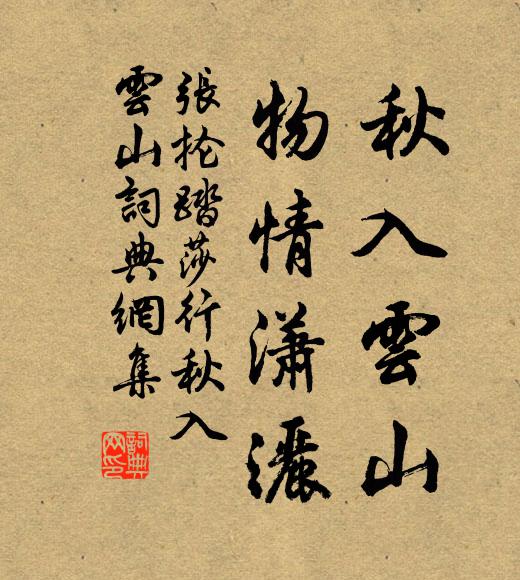 秋入雲山
物情瀟灑
張抡踏莎行秋入
雲山詞典網集
詞典網印